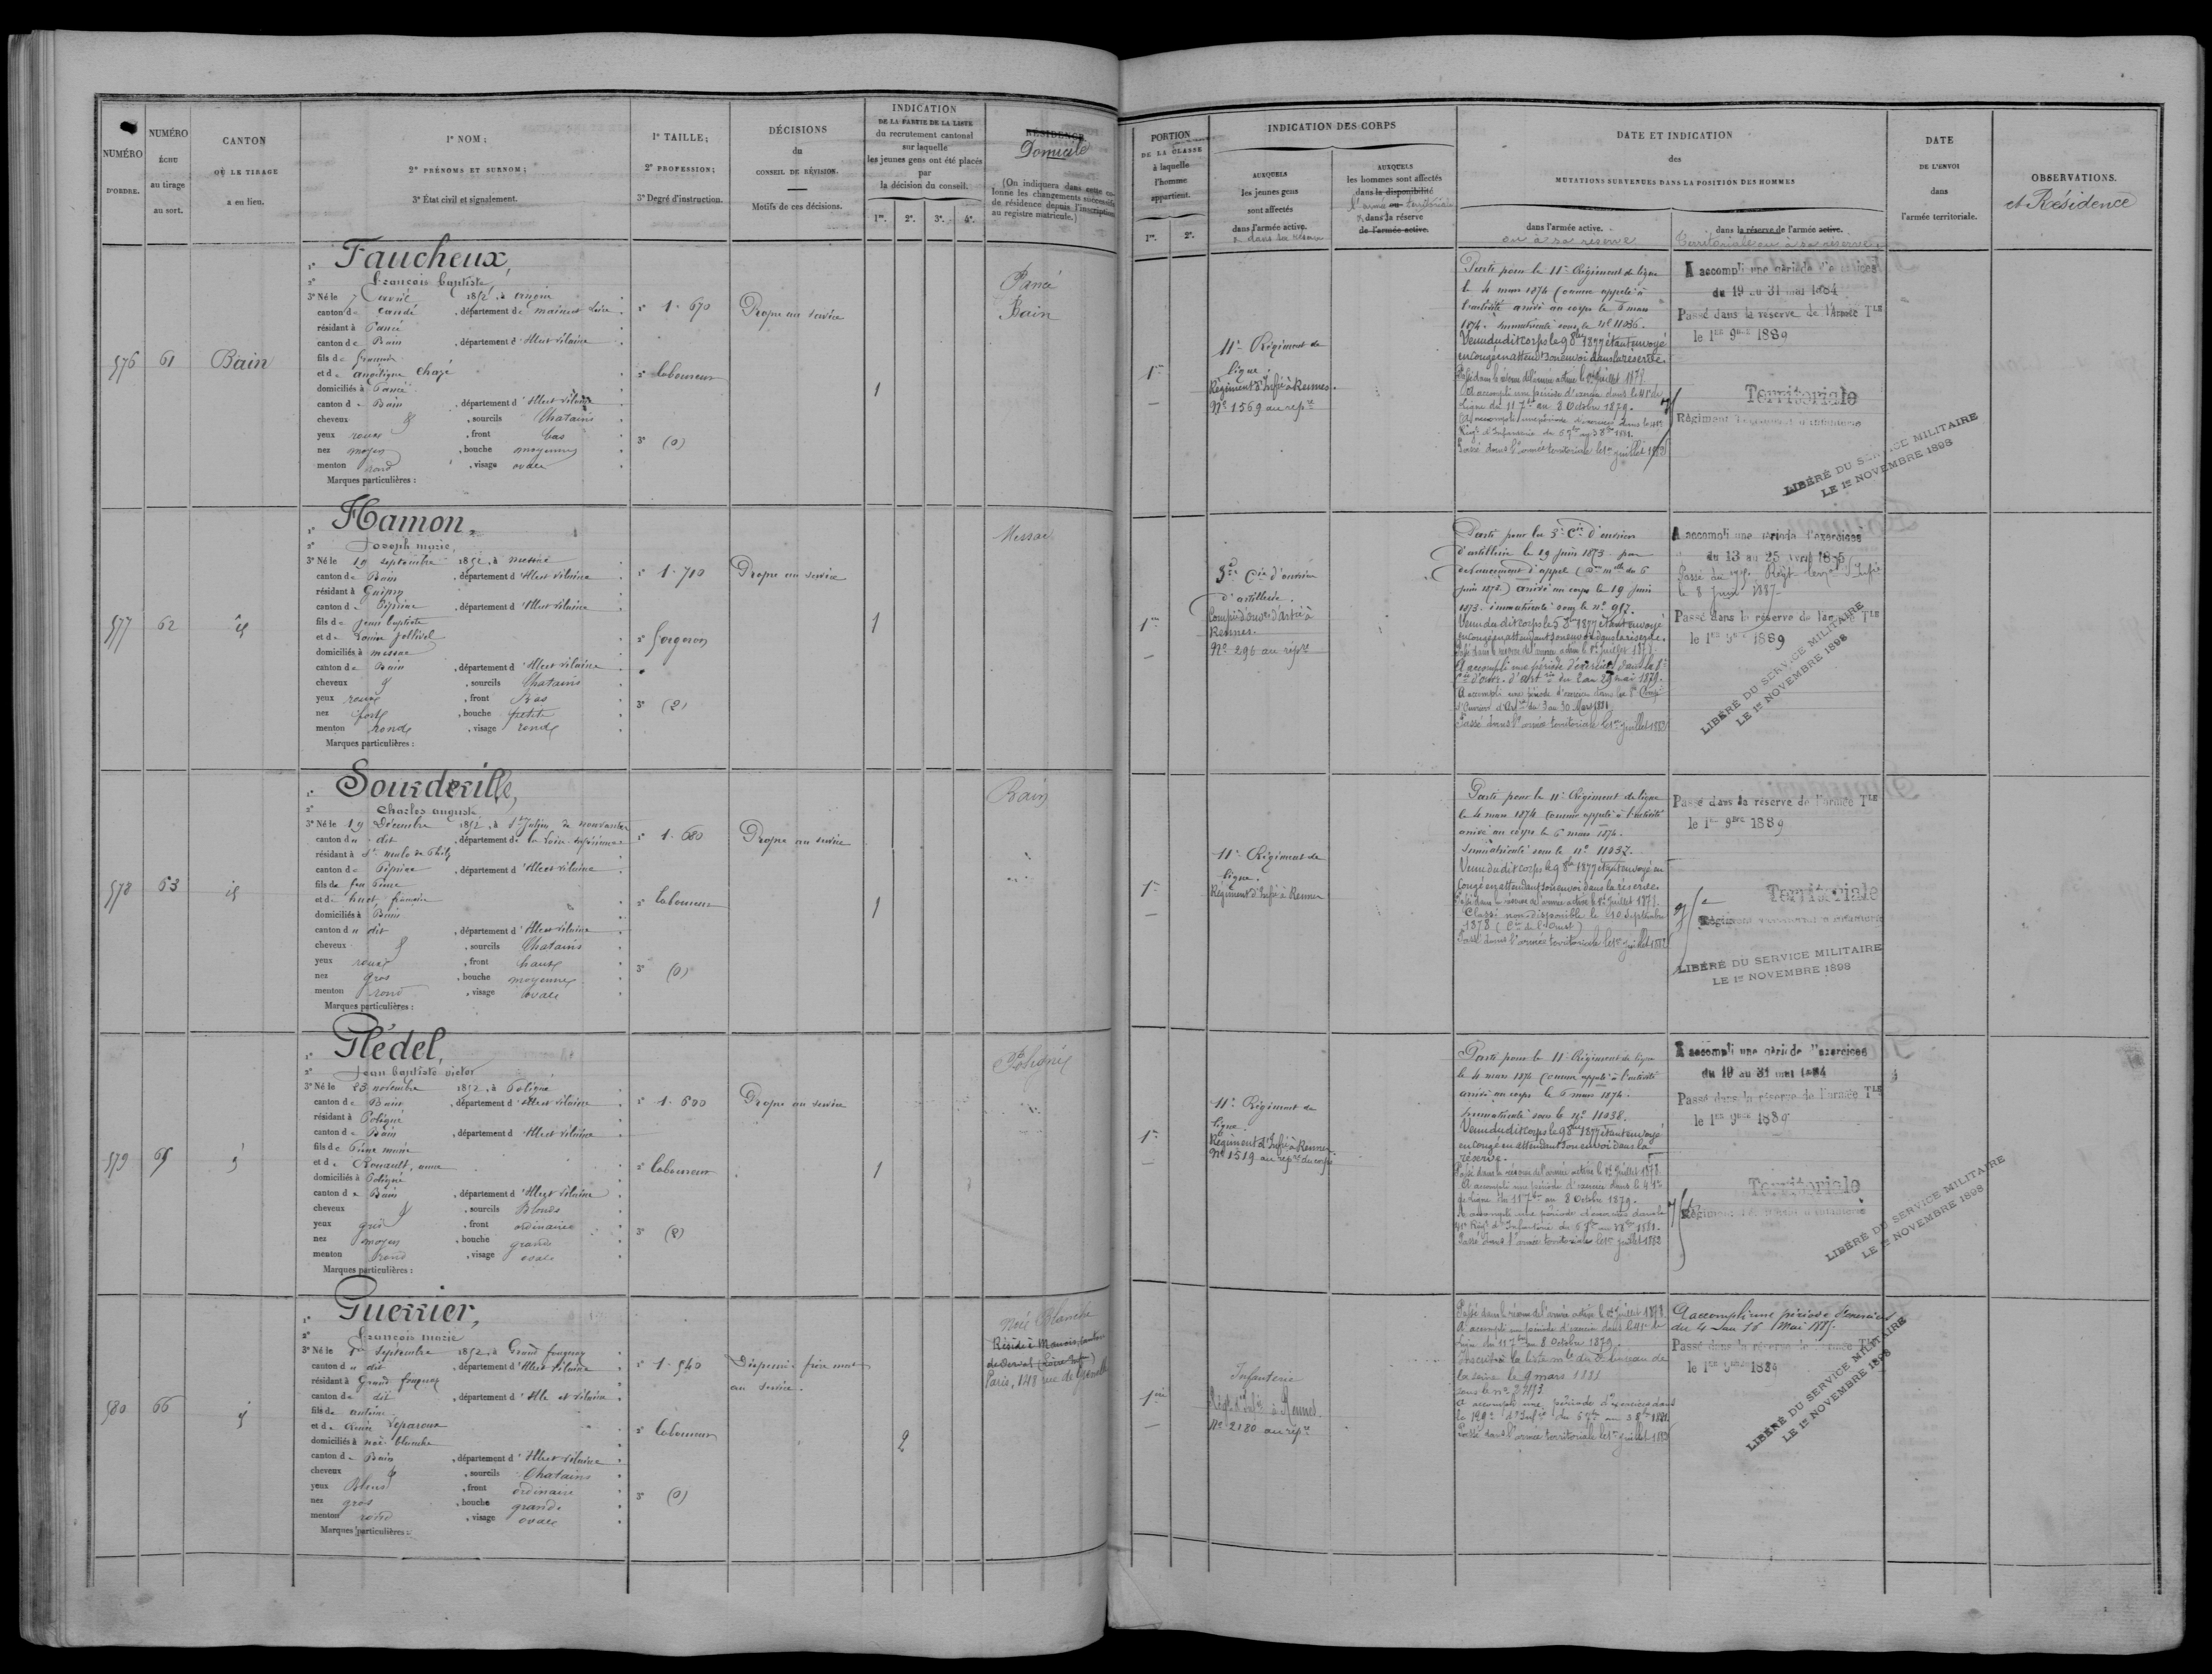 NUMÉRO
D'ORDRE.
NUMÉRO
ÉCHU
au tirage
au sort.
CANTON
OÙ LE TIRAGE
a eu lieu.
1° NOM ;
2° PRÉNOMS ET SURNOM ;
3° État civil et signalement.
1° TAILLE ;
2° PROFESSION ;
3° Degré d'instruction.
DÉCISIONS
du
CONSEIL DE RÉVISION.
Motifs de ces décisions.
INDICATION
DE LA PARTIE DE LA LISTE
du recrutement cantonal
sur laquelle
les jeunes gens ont été placés
par
la décision du conseil.
1re. 2e. 3e. 4e.
RÉSIDENCE
Domicile
(On indiquera dans cette colonne les changements successifs
de résidence depuis l'inscription
au registre matricule.)
PORTION
DE LA CLASSE
à laquelle
l'homme
appartient.
1re. 2e.
INDICATION DES CORPS
AUXQUELS
les jeunes gens
sont affectés
dans l'armée active.
AUXQUELS
les hommes sont affectés
dans la disponibilité
l'armée territoriale
dans la réserve
de l'armée active.
DATE ET INDICATION
des
MUTATIONS SURVENUES DANS LA POSITION DES HOMMES
dans l'armée active.
ou à sa réserve
dans la réserve de l'armée active.
Territoriale ou à sa réserve
DATE
DE L'ENVOI
dans
l'armée territoriale.
OBSERVATIONS.
et Résidence
576
61
Bain
1° Faucheux,
2° François baptiste
3° Né le 7 avril 1852, à
canton de candé, département de maine et Loire
résidant à Pancé
canton de Bain, département d'Ille et vilaine
fils de
et de Chazé
domiciliés à Pancé
canton de Bain, département d'Ille et vilaine
cheveux & , sourcils Chatains
yeux roux , front bas
nez moyen , bouche moyenne
menton rond , visage ovale
Marques particulières :
1° 1. 670
2° laboureur
3° (0)
Propre au service
1
Pancé
Bain
1re
11e Régiment de
ligne.
Régiment d'Infie à Rennes.
No 1569 au repre
Parti pour le 11e Régiment de ligne
le 4 mars 1874 comme appelé à
l'activité arrivé au corps le 6 mars
1874. Immatriculé sous le no 11036.
Venu dudit corps le 9 8bre 1877 étant envoyé
en congé en attendt son envoi dans la réserve.
Passé dans la réserve de l'armée active le 1er Juillet 1878.
A accompli une période d'exercice dans le 41e de
ligne du 11 7bre au 8 Octobre 1879.
Passé dans l'armée territoriale le 1er juillet 1882
A accompli une période d'exercices
du 19 au 31 mai 1884
Passé dans la réserve de l'Armée Tle
le 1er 9bre 1889
Territoriale
Régiment Territorial d'Infanterie
LIBÉRÉ DU SERVICE MILITAIRE
LE 1er NOVEMBRE 1898
577
62
id
1° Hamon,
2° Joseph marie,
3° Né le 19 septembre 1852, à messac
canton de Bain, département d'Ille et vilaine
résidant à Guipry
canton de Pipriac, département d'Ille et vilaine
fils de jean baptiste
et de Louise jollivel
domiciliés à messac
canton de Bain, département d'Ille et vilaine
cheveux & , sourcils Chatains
yeux roux , front Bas
nez fort , bouche petite
menton rond , visage rond
Marques particulières :
1° 1. 710
2° forgeron
3° (2)
Propre au service
1
Messac
1re
5e Cie d'ouvriers
d'artillerie.
Rennes.
No 296 au repre
Parti pour la 5e Cie d'ouvriers
d'artillerie le 19 juin 1873 par
devancement d'appel
juin 1873) arrivé au corps le 19 juin
1873. immatriculé sous le no 917.
Venu du dit corps le 5 8bre 1877 étant envoyé
en congé en attendant son envoi dans la réserve.
Passé dans la réserve de l'armée active le 1er Juillet 1878.
A accompli une période d'exercices dans la
Cie d'ouvr. d'arterie du 2 au 29 mai 1879.
A accompli une période d'exercice dans la
d'Ouvriers d'Artrie du 3 au 30 Mars 1881
Passé dans l'armée territoriale le 1er juillet 1882
A accompli une période d'exercices
du 13 au 25 avril 1885
Passé au 75e Régt terral d'Infie
le 8 juin 1887
Passé dans la réserve de l'armée Tle
le 1er 9bre 1889
LIBÉRÉ DU SERVICE MILITAIRE
LE 1er NOVEMBRE 1898
578
63
id
1° Sourdeville,
2° Charles auguste
3° Né le 19 Décembre 1852, à St Julien de vouvantes
canton du dit, département de la Loire inférieure
résidant à St malo de Phily
canton de Pipriac, département d'Ille et vilaine
fils de feu Pierre
et de huet françoise
domiciliés à Bain
canton du dit, département d'Ille et vilaine
cheveux & , sourcils Chatains
yeux roux , front haut
nez gros , bouche moyenne
menton rond , visage ovale
Marques particulières :
1° 1. 680
2° laboureur
3° (0)
Propre au service
1
Bain
1re
11e Régiment de
ligne.
Régiment d'Infie à Rennes
Parti pour le 11e Régiment de ligne
le 4 mars 1874 comme appelé à l'activité
arrivé au corps le 6 mars 1874.
Immatriculé sous le no 11037.
Venu du dit corps le 9 8bre 1877 étant envoyé en
congé en attendant son envoi dans la réserve.
Passé dans la réserve de l'armée active le 1er Juillet 1878.
Classé non-disponible le 10 Septembre
1878 (Cie de l'Ouest)
Passé dans l'armée territoriale le 1er juillet 1882
Passé dans la réserve de l'armée Tle
le 1er 9bre 1889
Territoriale
Régiment Territorial d'Infanterie
LIBÉRÉ DU SERVICE MILITAIRE
LE 1er NOVEMBRE 1898
579
65
id
1° Plédel,
2° Jean baptiste victor
3° Né le 23 novembre 1852, à Poligné
canton de Bain, département d'Ille et vilaine
résidant à Poligné
canton de Bain, département d'Ille et vilaine
fils de Pierre marie
et de Rouault, anne
domiciliés à Poligné
canton de Bain, département d'Ille et vilaine
cheveux & , sourcils Blonds
yeux gris , front ordinaire
nez moyen , bouche grande
menton rond , visage ovale
Marques particulières :
1° 1. 600
2° laboureur
3° (2)
Propre au service
1
Poligné
1re
11e Régiment de
ligne.
Régiment d'Infie à Rennes
No 1519 au repre du corps
Parti pour le 11e Régiment de ligne
le 4 mars 1874 comme appelé à l'activité
arrivé au corps le 6 mars 1874.
Immatriculé sous le no 11038.
Venu du dit corps le 9 8bre 1877 étant envoyé
en congé en attendant son envoi dans la
réserve.
Passé dans la réserve de l'armée active le 1er Juillet 1878.
A accompli une période d'exercice dans le 41e
de ligne du 11 7bre au 8 Octobre 1879.
A accompli une période d'exercices dans le
41e Régt d'Infanterie du 6 7bre au 3 8bre 1881.
Passé dans l'armée territoriale le 1er juillet 1882
A accompli une période d'exercices
du 19 au 31 mai 1884
Passé dans la réserve de l'armée Tle
le 1er 9bre 1889
Territoriale
Régiment Territorial d'Infanterie
LIBÉRÉ DU SERVICE MILITAIRE
LE 1er NOVEMBRE 1898
580
66
id
1° Guerrier,
2° François marie
3° Né le septembre 1852, à Grand fougeray
canton du dit, département d'Ille et vilaine
résidant à Grand fougeray
canton du dit, département d'Ille et vilaine
fils de antoine
et de Leparoux
domiciliés à noë blanche
canton de Bain, département d'Ille et vilaine
cheveux & , sourcils Chatains
yeux Bleus , front ordinaire
nez gros , bouche grande
menton rond , visage ovale
Marques particulières :
1° 1. 540
2° laboureur
3° (0)
Dispensé. frère mort
au service.
2
Noë Blanche
Réside à
de Derval (Loire Infre)
Paris, 148 rue de Grenelle
1re
Infanterie
Régt d'Infie à Rennes.
No 2180 au repre
Passé dans la réserve de l'armée active le 1er juillet 1878.
A accompli une période d'exercice dans le 41e de
ligne du 11 7bre au 8 Octobre 1879.
Inscrit à la liste du bureau de
la seine le 9 mars 1881
sous le no
A accompli une période d'exercices dans
le 129e d'Infie du 6 7bre au 3 8bre 1881.
Passé dans l'armée territoriale le 1er juillet 1882
A accompli une période d'exercices
du 4 au 16 Mai 1885.
Passé dans la réserve de l'armée Tle
le 1er 9bre 1889
LIBÉRÉ DU SERVICE MILITAIRE
LE 1er NOVEMBRE 1898